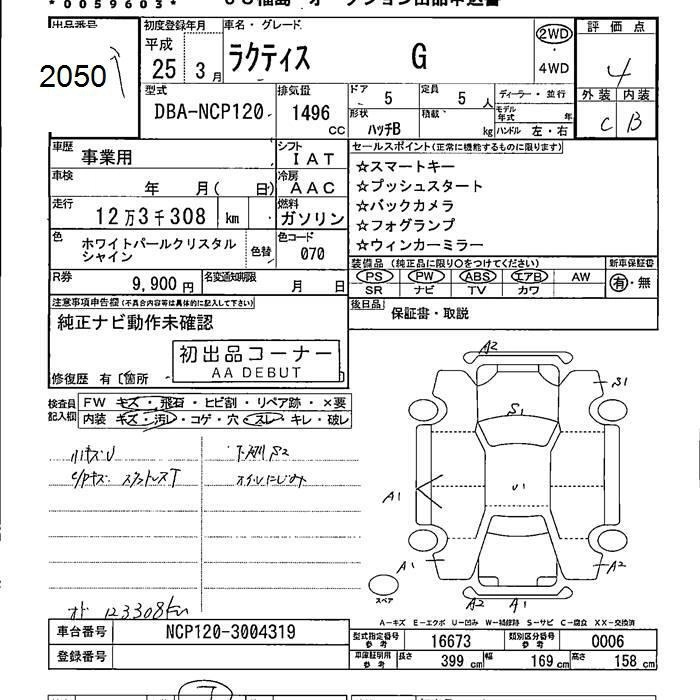 * 0 0 5 9 6 0 3 *
出品番号
2050
初度登録年月
平成
25 3 月
車名・グレード
ラクティス G
2WD
4WD
評価点
4
外装 内装
C B
型式
DBA-NCP120
排気量
1496
cc
ドア
5
定員
5 人
形状
ハッチB
積載
kg
ディーラー・並行
モデル年式 年
ハンドル 左・右
車歴
事業用
シフト
IAT
車検
年 月( 日)
冷房
AAC
走行
12万3千308 km
燃料
ガソリン
色
ホワイトパールクリスタル
シャイン
色替
色コード
070
R券
9,900 円
名変通知期限
月 日
セールスポイント(正常に機能するものに限ります)
☆スマートキー
☆プッシュスタート
☆バックカメラ
☆フォグランプ
☆ウィンカーミラー
装備品 (純正品に限り○をつけてください)
新車保証書
PS PW ABS エアB AW
有・無
SR ナビ TV カワ
後日品
保証書・取説
注意事項申告欄(不具合内容等は具体的に記入して下さい)
純正ナビ動作未確認
初出品コーナー
AA DEBUT
修復歴 有〔箇所
検査員
記入欄
FW キズ・飛石・ヒビ割・リペア跡・×要
内装 キズ・汚レ・コゲ・穴・スレ・キレ・破レ
小キズU
下廻り S2
オイルにじみ
123308km
A2
S1
S1
A1
U1
A1
A2
A2 A1
スペア
A-キズ E-エクボ U-凹み W-補修跡 S-サビ C-腐食 XX-交換済
車台番号
NCP120-3004319
登録番号
型式指定番号
参考
16673
類別区分番号
参考
0006
車庫証明用
参考
長さ
399 cm
幅
169 cm
高さ
158 cm